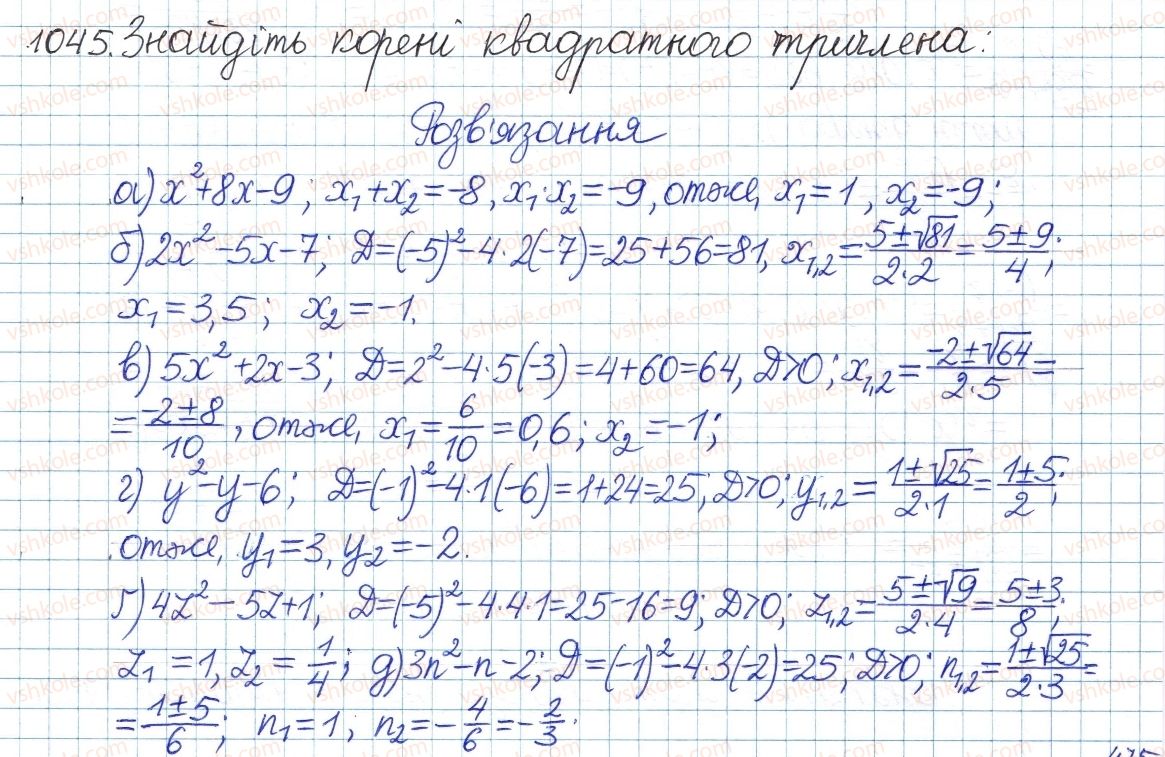 1045. Знайдіть корені квадратного тричлена:
Розв'язання
а) x²+8x-9; x₁+x₂=-8, x₁·x₂=-9, отже, x₁=1, x₂=-9;
б) 2x²-5x-7; D=(-5)²-4·2(-7)=25+56=81, x₁,₂=(5±√81)/(2·2)=(5±9)/4;
x₁=3,5; x₂=-1.
в) 5x²+2x-3; D=2²-4·5(-3)=4+60=64, D>0; x₁,₂=(-2±√64)/(2·5)=
=(-2±8)/10, отже, x₁=6/10=0,6; x₂=-1;
г) y²-y-6; D=(-1)²-4·1(-6)=1+24=25; D>0; y₁,₂=(1±√25)/(2·1)=(1±5)/2;
отже, y₁=3, y₂=-2.
ґ) 4z²-5z+1; D=(-5)²-4·4·1=25-16=9; D>0; z₁,₂=(5±√9)/(2·4)=(5±3)/8;
z₁=1, z₂=1/4; д) 3n²-n-2; D=(-1)²-4·3(-2)=25; D>0; n₁,₂=(1±√25)/(2·3)=
=(1±5)/6; n₁=1; n₂=-4/6=-2/3.